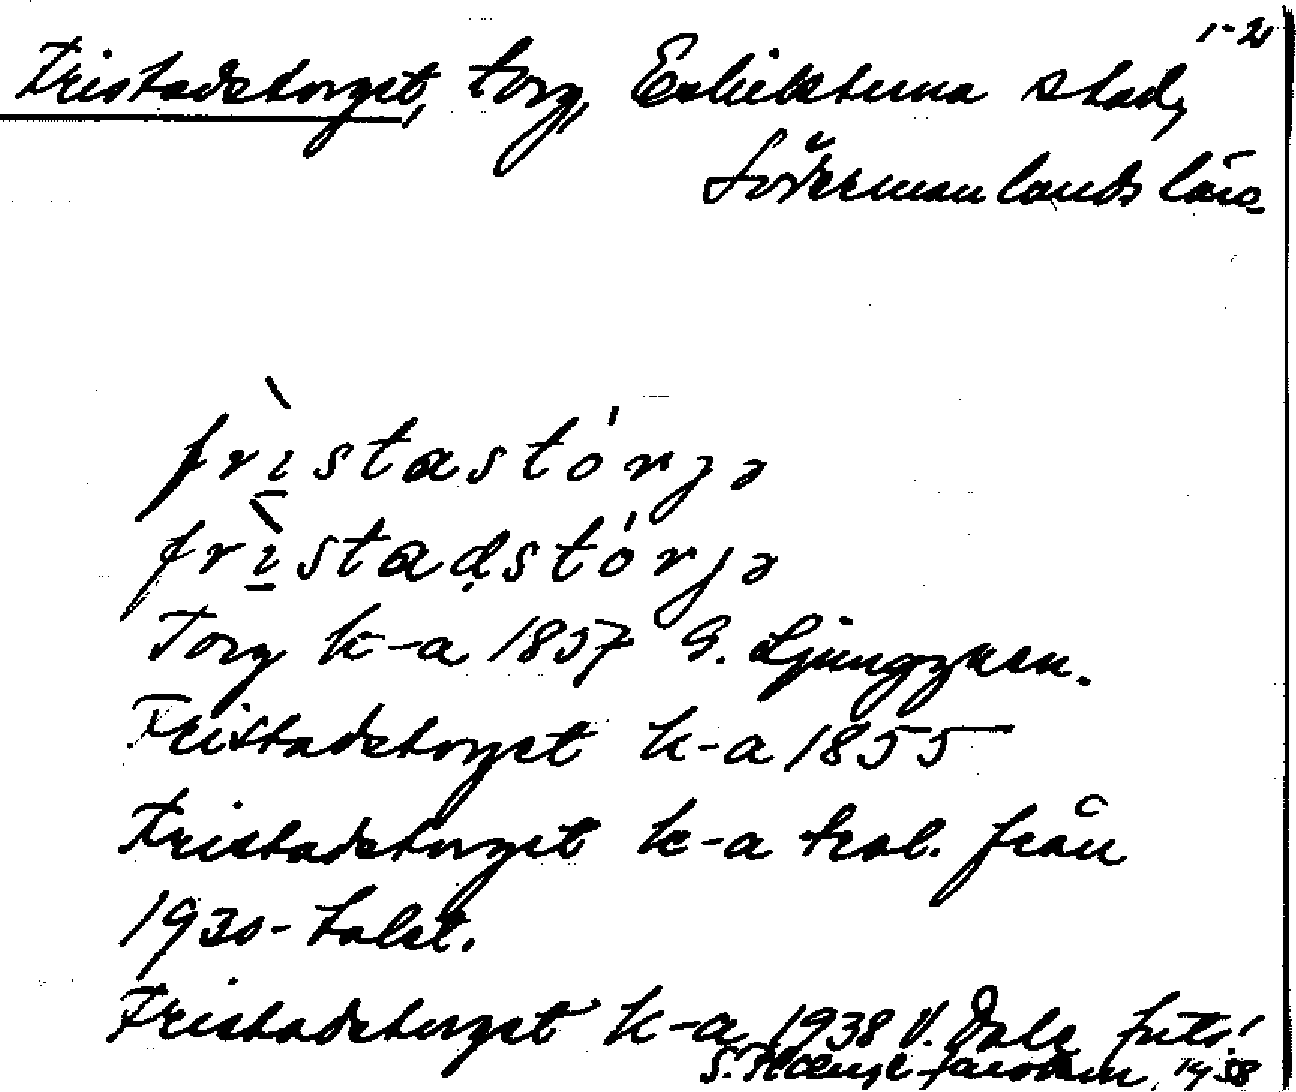 1-2
Fristadstorget, torg, Eskilstuna stad,
Södermanlands län.
frìstastórjə
frìstaḍstórjə
Torg k-a 1857 G. Ljunggren.
Fristadstorget k-a 1855
Fristadstorget k-a trol. från
1930-talet.
Fristadstorget k-a 1938 V. Dale
S. 1938